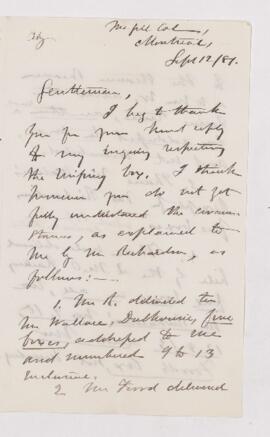 McGill Col,
Montreal,
Sept 12/81.
Gentlemen,
I beg to thank
you for your kind reply
to my inquiry respecting
the missing box. I think
however you do not yet
fully understand the circum
stances, as explained to
me by Mr Richardson, as
follows:—
1. Mr R. delivered to
Mr Wallace, Dalhousie, five
boxes, addressed to me
and numbered 9 to 13
inclusive.
2 Mr Ford delivered